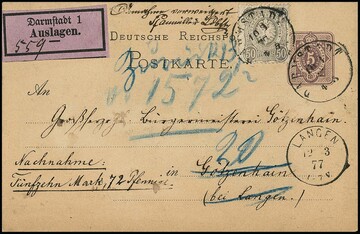 Darmstadt 1
Auslagen.
559
Annahme verweigert
DEUTSCHE REICHSPOST
POSTKARTE
1572
An
Großherzogl. Bürgermeisterei Götzenhain.
20
Nachnahme
in Götzenhain
Fünfzehn Mark, 72 Pfennig
(bei Langen.)
LANGEN
12 3
77
DARMSTADT
50
5